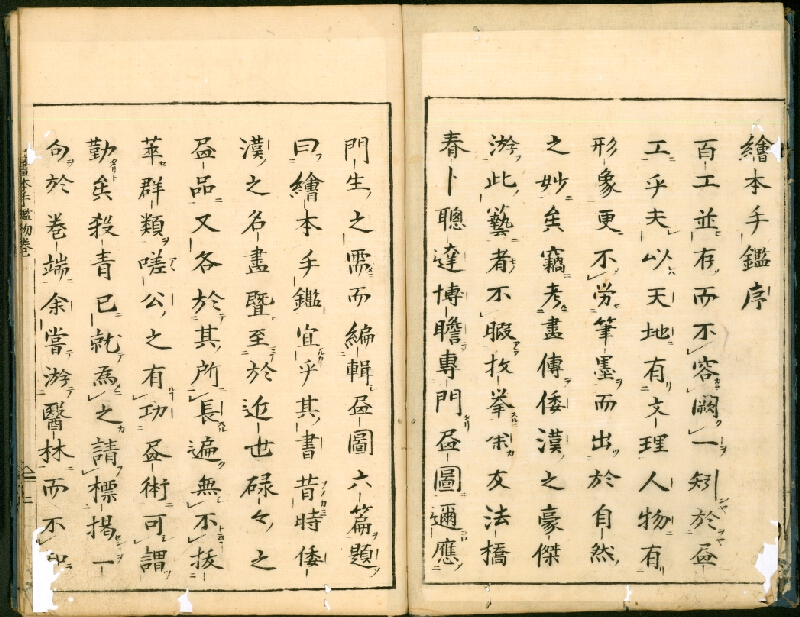 繪本手鑑序
百工並存而不容闕一矧於畫
工乎夫以天地有文理人物有
形象更不労筆墨而出於自然
之妙矣竊考畫傳倭漢之豪傑
游此藝者不暇枚挙余友法橋
春卜聰達博瞻專門畫圖邇應
門生之需而編輯畫圖六篇題
曰繪本手鑑宜乎其書昔時倭
漢之名畫曁至於近世碌々之
畫品又各於其所長遍無不抜
萃群類嗟公之有功畫術可謂
勤矣殺青已就為之請標掲一
句於巻端余嘗游醫林而不
繪本手鑑初巻